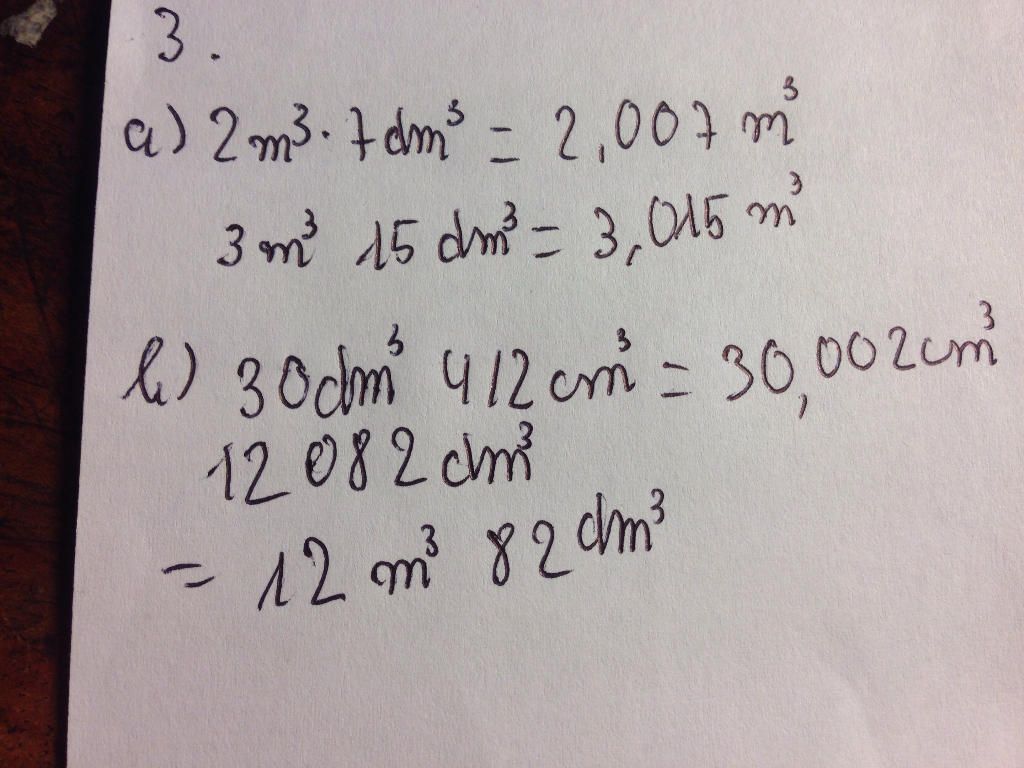 3.
a) 2m³·7dm³ = 2,007 m³
3m³ 15 dm³ = 3,015 m³
b) 30dm³ 412cm³ = 30,002cm³
12 082 dm³
= 12 m³ 82 dm³